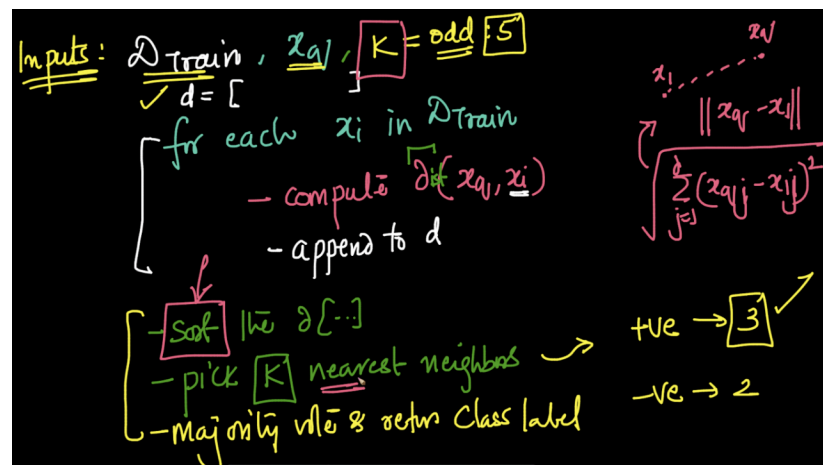 Inputs: DTrain, xq, K = odd: 5
d = [ ]
for each xi in DTrain
- compute dist(xq, xi)
- append to d
- Sort the d[...]
- pick K nearest neighbors
- Majority vote & return Class label
xq
x1
||xq - x1||
√ d Σ j=1 (xqj - x1j)²
+ve → 3
-ve → 2